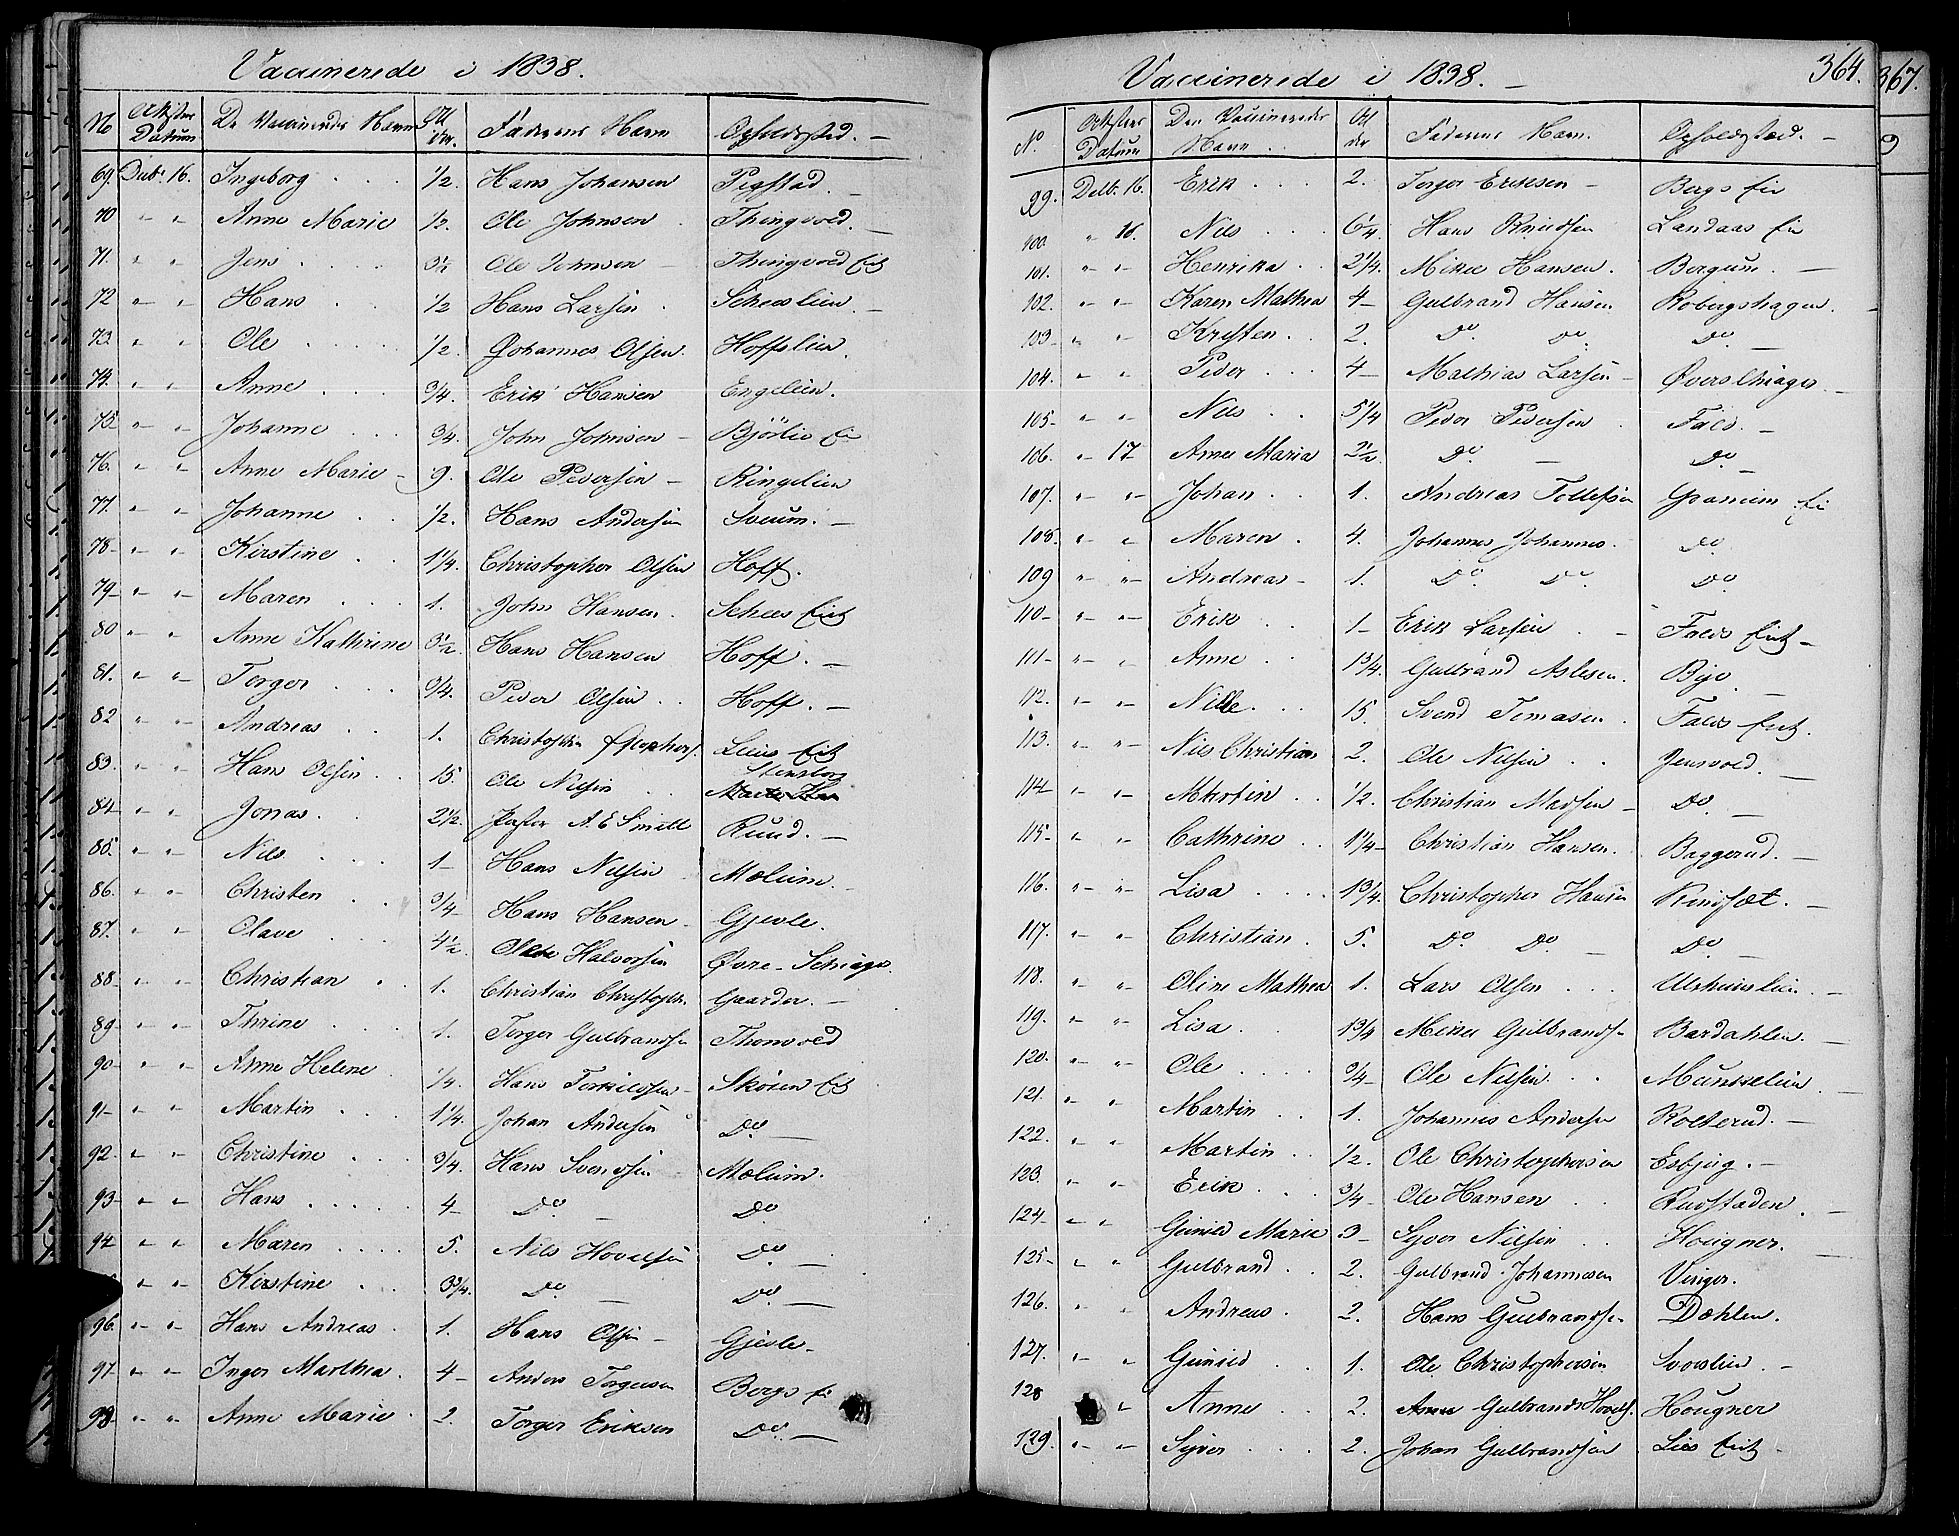 Vaccinerede i 1838.
No Attestens Datum De Vaccineredes Navn Alder. Faderens Navn Opholdsted. –
69. Decbr 16. Ingeborg 1/2. Hans Johansen Pigstad. –
70 " " Anne Marie 1/2. Ole Johnsen Thingvold. –
71. " " Jens 3 1/2 Ole Johnsen – Thingvold Eit
72 " " Hans 1/2 Hans Larsen Scheeslien. –
73. " " Ole 1/2. Johannes Olsen. Hoffslien.
74. " " Anne 3/4. Erik Hansen Engelien.
75 " " Johanne 3/4. John Johnsen – Bjørlie
76. " " Anne Marie – 9. Ole Pedersen – Ringelien
77. " " Johanne 1/2. Hans Andersen Sveum. –
78– " " Kirstine 1 1/4. Christopher Olsen Hoff.
79– " " Maren 1. John Hansen. Schees Eit
80 " " Anne Kathrine 3 1/2. Hans Hansen Hoff. –
81. " " Torger 3/4. Peder Olsen Hoff. –
82 " " Andreas 1. Christophr Christophers. Liens Eit
83. " " Hans Olsen 15. Ole Nilsen Stenslor
84– " " Jonas 2 1/2. Pastor A. E Smith Ruud. –
85. " " Nils 1– Hans Nilsen Mælum.
86. " " Christen 3/4– Hans Hansen Gjevle.
87. " " Olave 4 1/2. Ole Halvorsen Øvre–Schiager.
88– " " Christian 1. Christian Christophr. Gaarder. –
89– " " Thrine 1. Torger Gulbrandsn Thomvold
90– " " Anne Helene 1/4. Hans Torkildsen– Skøien Eit
91– " " Martin 1 1/4. Johan Andersen Do –
92– " " Christine 3/4. Hans Svendsen Mælum.
93– " " Hans 4– Do – Do
94 " " Maren 5. Nils Hovelsen Do –
" " Kirstine 3 3/4. Do – Do –
96. " " Hans Andreas 1. Hans Olsen – Gjevle–
97– " " Inger Marthea. 4– Anders Torgersen Bergs
98– " " Anne Marie 2. Torger Eriksen Do –
Vaccinerede i 1838. – 364.
No. Attestens Datum Den Vaccineredes Navn Alder Faderens Navn. Opholdsted. –
99. Decbr. 16. Erik 2. Torger Eriksen – Bergs
100. " 16. Nils 6 1/4. Hans Knudsen Landaas
101. " " Henrika 2 1/4. Mikel Hansen. Bergum. –
102. " " Karen Mathea 4– Gulbrand Hansen Robergshagen.
103– " " Kristen 2. Do Do Do –
104. " " Peder 4– Mathias Larsen – Øverschiager –
105– " " Nils 5 1/4 Peder Pedersen Fals. –
106. " 17 Anne Maria 2 1/2. Do – Do –
107. " " Johan 1. Andreas Tollefsen Granum
108. " " Maren 4. Johannes Johannes. Do
109 " " Andreas – 1. Do Do Do
110– " " Erik 1– Erik Larsen – Fals Eit –
111– " " Anne 1 3/4. Gulbrand Aslesen. Bye. –
112. " " Nille 15. Svend Tomasen Fals Eit.
113. " " Nils Christian 2. Ole Nilsen Jensvold. –
114 " " Martin 1/2. Christian Madsen – Do –
115– " " Cathrine 1 1/4– Christian Hansen. Baggerud. –
116. " " Lisa 1 3/4. Christopher Hansen Kindset. –
117. " " Christian. 5. Do Do – Do –
118. " " Oline Mathea 1. Lars Olsen Ulshuuslien. –
119. " " Lisa 1 3/4 Mikel Gulbrandsn Bardahlen. –
120. " " Ole 3/4– Ole Nilsen. Munkelien –
121. " " Martin 1. Johannes Andersen Rolterud. –
122. " " Martin 1/2. Ole Christophersen Esbjug. –
123. " " Erik 3/4– Ole Hansen Rudstaden. –
124– " " Gunild Marie 3– Syver Nilsen Hougner. –
125– " " Gulbrand 2. Gulbrand Johannesen Vinger.
126. " " Andreas 2. Hans Gulbrandsn Dæhlen.
127. " " Gunild 1. Ole Christophersen Svoslien. –
128 " Anne 2. Gulbrand Hovels. Hougner
129. " " Syver 2. Johan Gulbrandsen Lies Eit –
367.